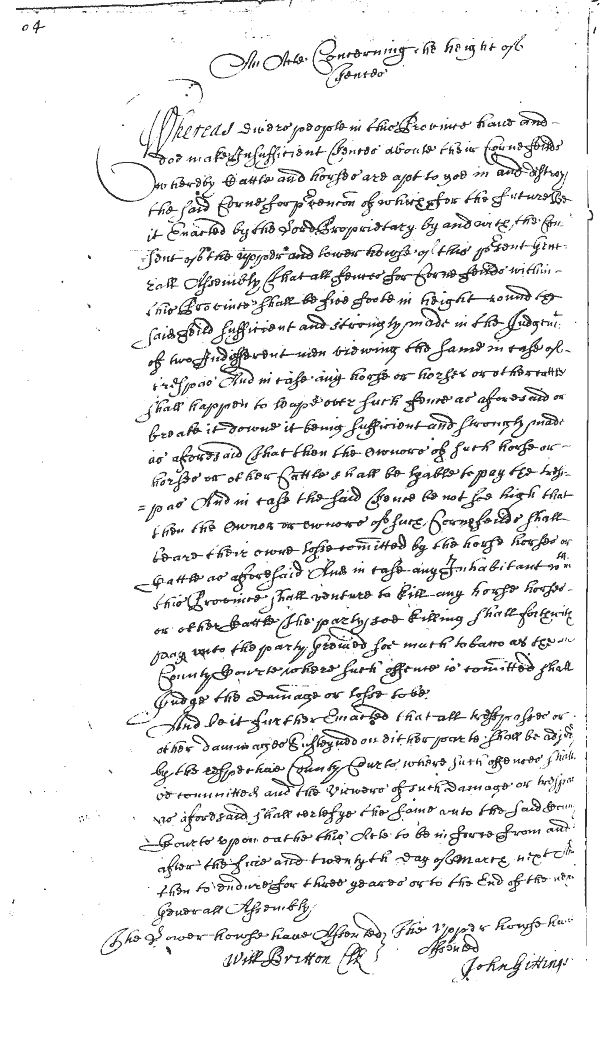 04
An Acte Concerning the height of
ffences
Whereas divers people in this Province have and
doe make Insufficient ffences aboute their Corne feilds
whereby Cattle and horses are apt to goe in and destroy
the said Corne for prvencon of which for the future Be
it Enacted by the Lord Proprietary by and with the Con-
sent of the upper and lower howse of this prsent Gene-
rall Assembly That all fences for Corne feilds within
this Province shall be five foote in height round the
said feild sufficient and strongly made in the Judgmt
of two Indifferent men viewing the same in case of
trespas And in case any horse or horses or other cattle
shall happen to leape over such fence as aforesaid or
breake it downe it being sufficient and strongly made
as aforesaid That then the owners of such horse or
horses or other Cattle shall be lyable to pay the tres-
= pas And in case the said ffence be not five high that
then the owner or owners of such Corne feilds shall
beare their owne losse comitted by the horse horses or
Cattle as aforesaid And in case any Inhabitant wth in
this Province shall venture to kill any horse horses
or other Cattle The party soe killing shall forthwith
pay unto the party greived soe much tobacco as the
County Courte where such offence is comitted shall
Judge the damage or losse to be
And be it further Enacted that all trespasses or
other dammages Ensueing on either parte shall be
by the respective County Courts where such offences shall
be committed and the viewers of such damage or trespas
as aforesaid shall certefye the same unto the said County
Courte upon oathe this Acte to be in force from and
after the five and twentyth day of March next
then to endure for three yeares or to the End of the next
Generall Assembly
The Lower howse have Assented The Upper howse have
Will Britton Clk Assented
John Gittings